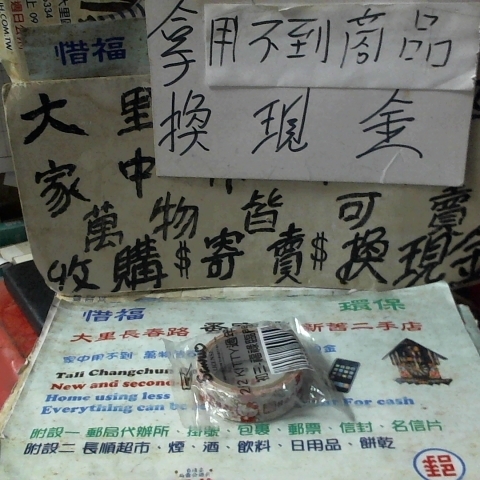 惜福
拿用不到商品
換現金
大里
家中
萬物皆可賣
收購$寄賣$換現金
惜福 環保
大里長春路 新舊二手店
Tali Changchun
New and second
Home using less
Everything can be For cash
附設一 郵局代辦所、掛號、包裹、郵票、信封、名信片
附設二 長順超市、煙、酒、飲料、日用品、餅乾
郵